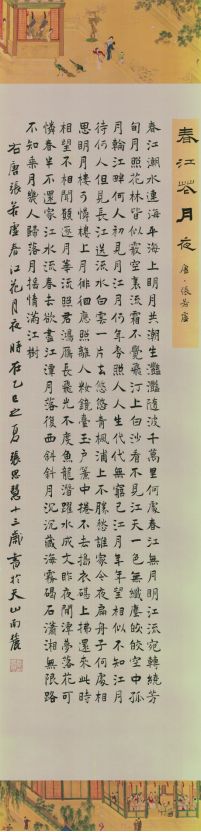 春江花月夜
唐·張若虛
春江潮水連海平海上明月共潮生灧灧隨波千萬里何處春江無月明江流宛轉繞芳
甸月照花林皆似霰空裏流霜不覺飛汀上白沙看不見江天一色無纖塵皎皎空中孤
月輪江畔何人初見月江月何年初照人人生代代無窮已江月年年望相似不知江月
待何人但見長江送流水白雲一片去悠悠青楓浦上不勝愁誰家今夜扁舟子何處相
思明月樓可憐樓上月徘徊應照離人妝鏡臺玉戶簾中捲不去搗衣砧上拂還來此時
相望不相聞願逐月華流照君鴻雁長飛光不度魚龍潛躍水成文昨夜閒潭夢落花可
憐春半不還家江水流春去欲盡江潭月落復西斜斜月沉沉藏海霧碣石瀟湘無限路
不知乘月幾人歸落月搖情滿江樹
右唐張若虛春江花月夜時在乙巳之夏張思慧十三歲書於天山南麓